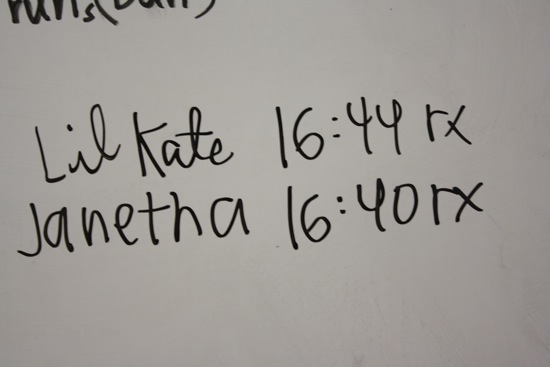 Lil Kate 16:44 rx
Janetha 16:40 rx